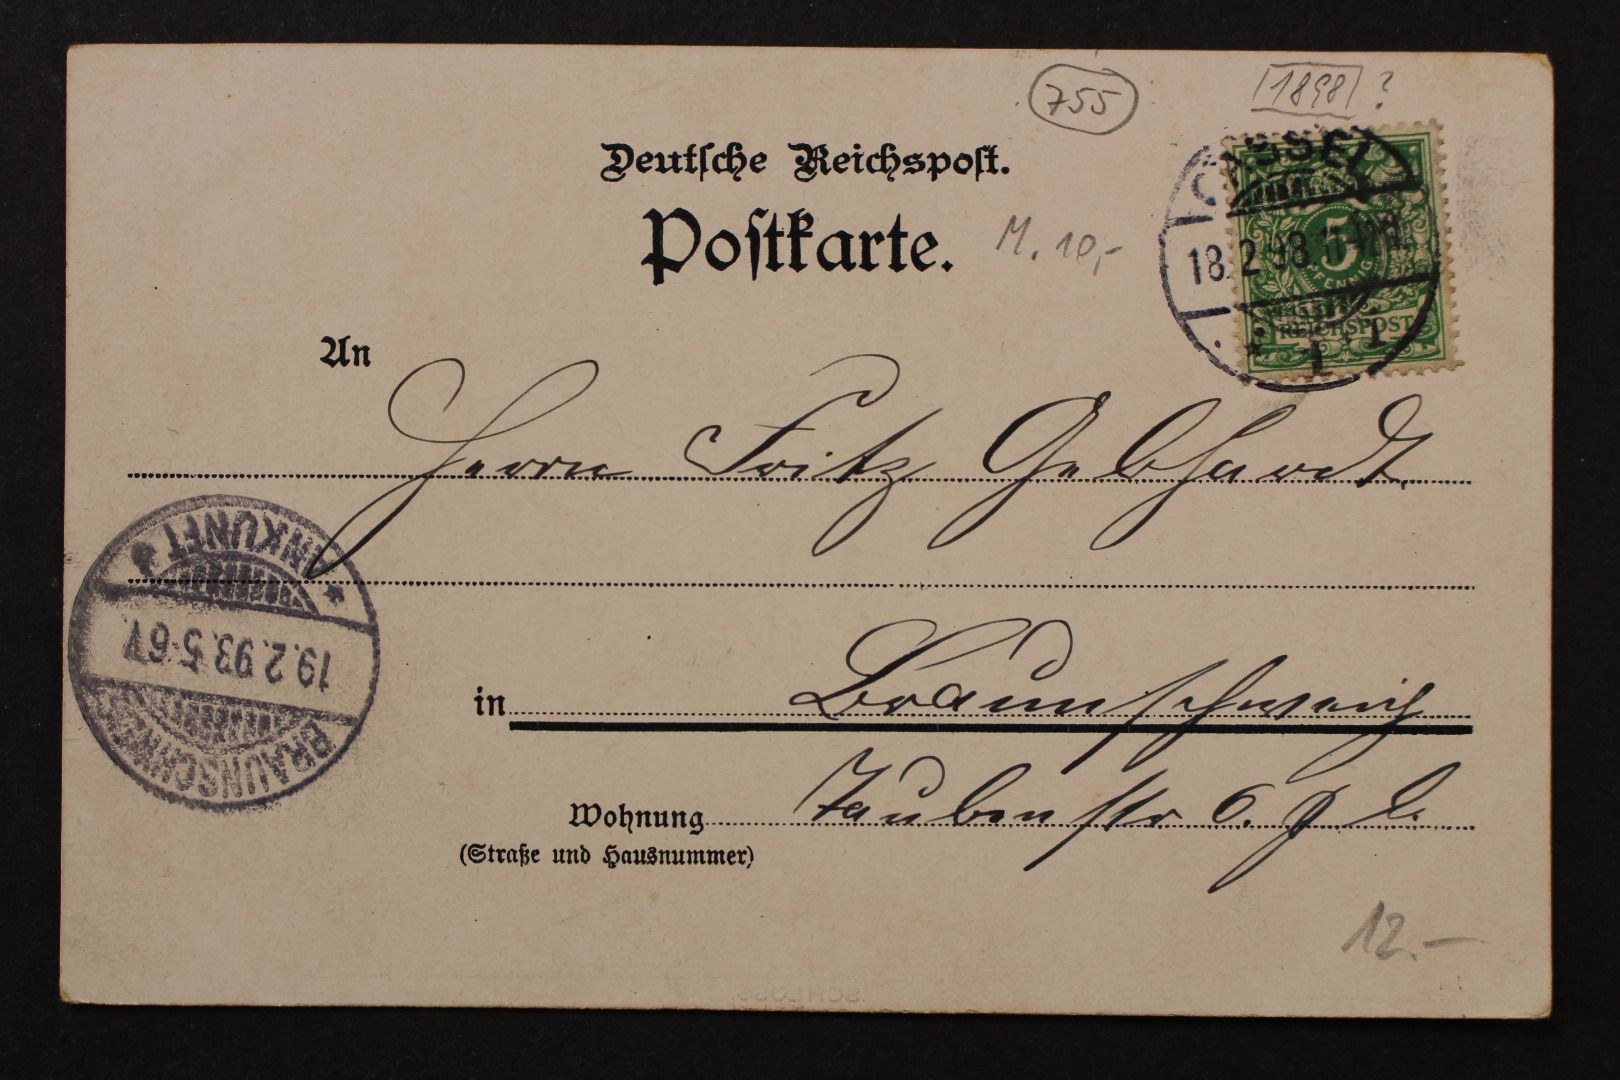 755
1898 ?
Deutsche Reichspost.
Postkarte.
M. 10,-
CASSEL
18.2.98.11-12N.
* 1 *
5
PFENNIG
REICHSPOST
An
Herrn Fritz Gebhardt.
in Braunschweig
Wohnung Taubenstr 6. p l.
(Straße und Hausnummer)
BRAUNSCHWEIG
19.2.98.5-6V.
* ANKUNFT *
12.-
SCHLOSS